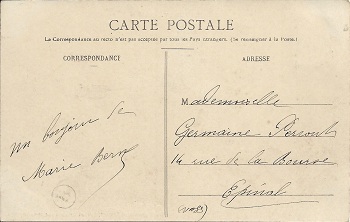 CARTE POSTALE
La Correspondance au recto n'est pas acceptée par tous les Pays étrangers. (Se renseigner à la Poste.)
CORRESPONDANCE
ADRESSE
un bonjour de
Marie
Mademoiselle
Germaine Perrout
14 rue de la Bourse
Epinal
(Vosges)